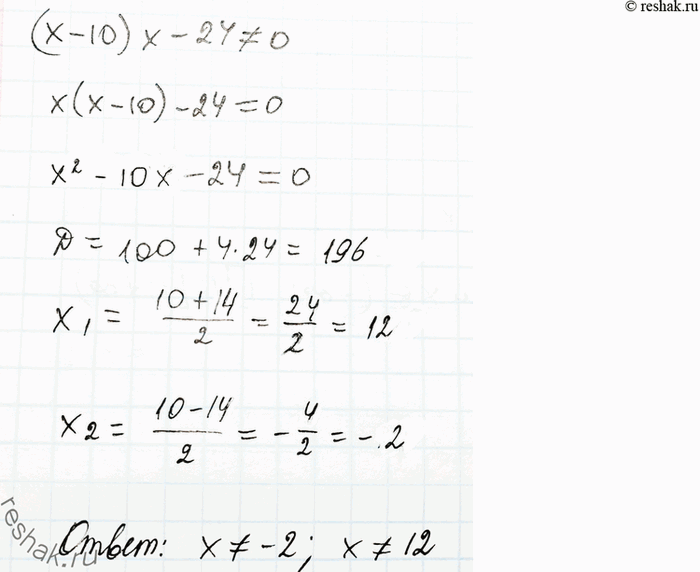 © reshak.ru
(x-10) x - 24 ≠ 0
x(x-10) - 24 = 0
x² - 10x - 24 = 0
D = 100 + 4·24 = 196
x₁ = (10+14)/2 = 24/2 = 12
x₂ = (10-14)/2 = -4/2 = -2
reshak.ru
Ответ: x ≠ -2; x ≠ 12